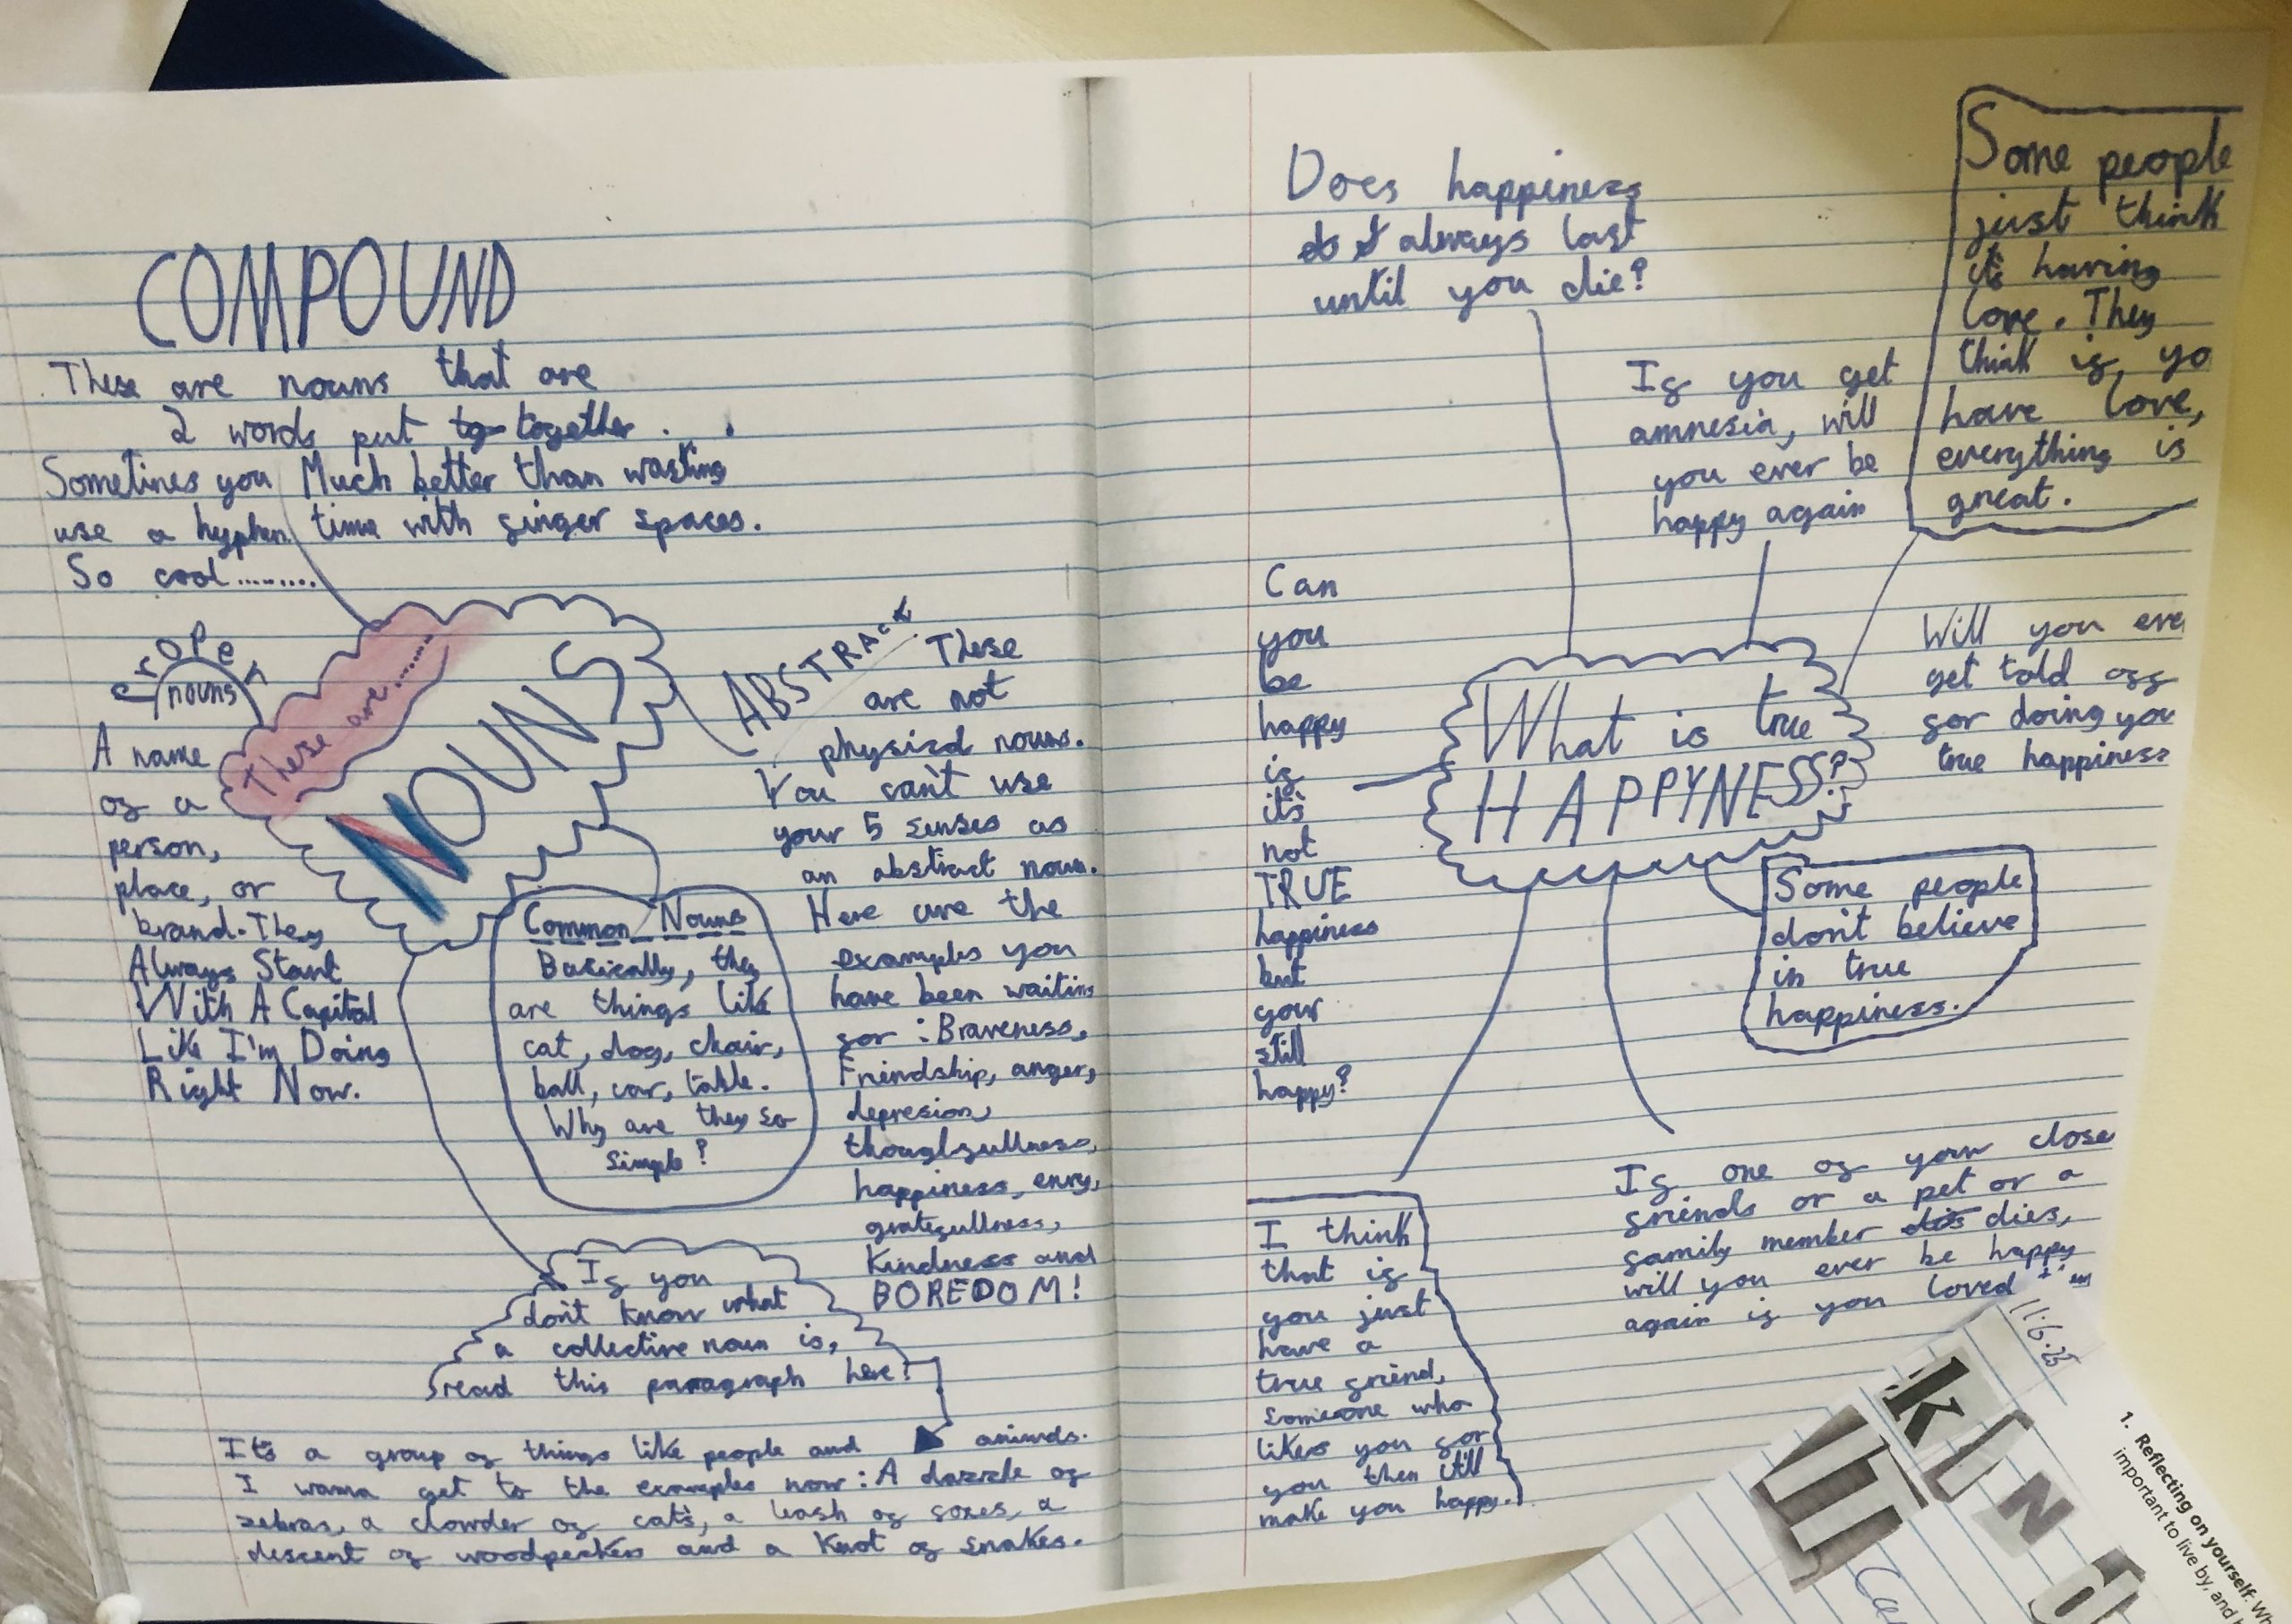 COMPOUND
These are nouns that are
2 words put to together.
Sometimes you
use a hyphen.
So cool.........
Much better than wasting
time with finger spaces.
proper
nouns
A name
of a
person,
place, or
brand. They
Always Start
With A Capital
Like I'm Doing
Right Now.
These are......
NOUNS
ABSTRACT
These
are not
physical nouns.
You can't use
your 5 senses as
an abstract noun.
Here are the
examples you
have been waiting
for : Braveness,
Friendship, anger,
depresion,
thoughfullness,
happiness, envy,
gratefullness,
Kindness and
BOREDOM!
Common Nouns
Basically, they
are things like
cat, dog, chair,
ball, car, table.
Why are they so
simple?
If you
don't know what
a collective noun is,
read this paragraph here!
It's a group of things like people and animals.
I wanna get to the examples now : A dazzle of
zebras, a clowder of cats, a leash of foxes, a
descent of woodpeckers and a knot of snakes.
Does happiness
always last
until you die?
If you get
amnesia, will
you ever be
happy again
Some people
just think
it's having
love. They
think if yo
have love,
everything is
great.
Can
you
be
happy
if
it's
not
TRUE
happiness
but
your
still
happy?
What is true
HAPPYNESS?
Will you eve
get told off
for doing you
true happiness
Some people
don't believe
in true
happiness.
I think
that if
you just
have a
true friend,
someone who
likes you for
you then it'll
make you happy.
If one of your close
friends or a pet or a
family member dies,
will you ever be happy
again if you loved
11.6.25
kINd
1. Reflecting on yourself. Wh
important to live by, and